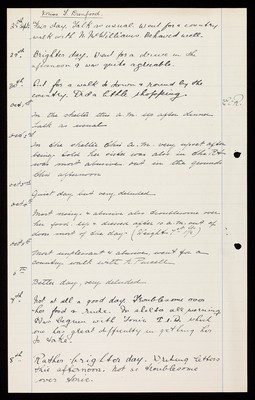 28th Sept. This day. Talk as usual. Went for a country
walk with N. McWilliams. Behaved well.
29th. Brighter day. Went for a drive in the
afternoon & was quite agreeable.
30th. Out for a walk to town & round by the
country. Did a little shopping.
Oct 1st
In the shelter this a.m. up after dinner
Talk as usual
Oct 2nd
In the shelter this a.m. very upset after
being told her sister was also in the
was most abusive out in the grounds
this afternoon
Oct 3rd
Quiet day but very deluded.
Oct 4th
Most noisy & abusive also troublesome over
her food, up & dressed after 10 a.m. out of
doors most of the day (Weight 7st
Oct 5th
Most unpleasant & abusive, went for a
country walk with N. Purcell.
Better day, very deluded
7th. Not at all a good day. Troublesome over
her food & rude. In shelter all morning
Was begun with Tonic T.I.D. which
one has great difficulty in getting her
to take.
8th. Rather brighter day. Writing letters
this afternoon. Not so troublesome
over tonic.